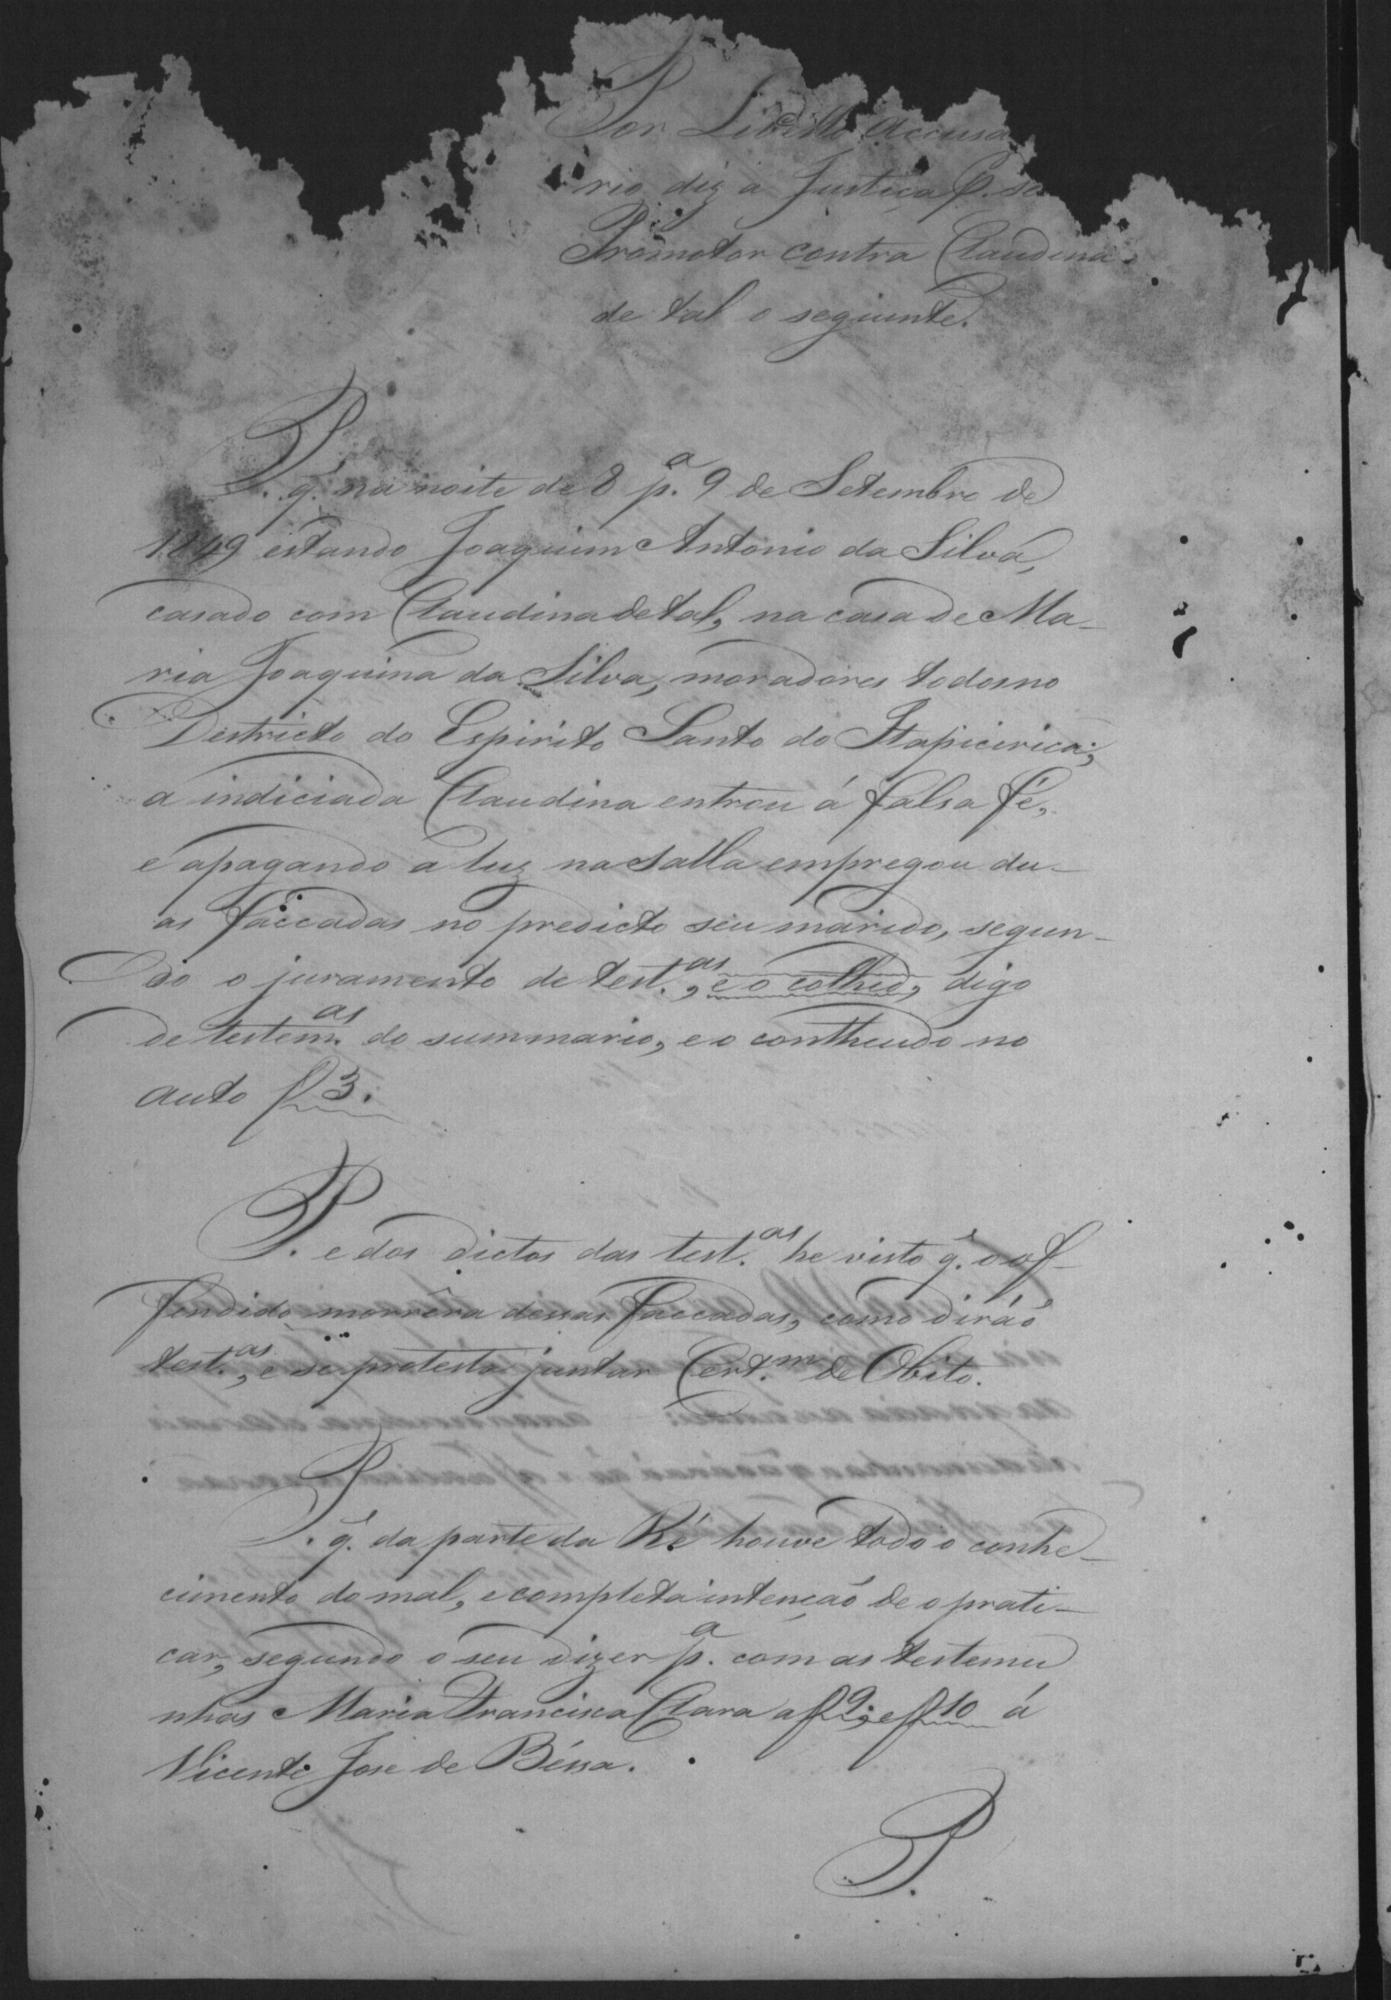 Por Libello accusa
rio diz a Justiça p. se
Promotor contra Claudina
de tal o seguinte.
P. q. na noite de 8 p.ª 9 de Setembro de
1849 estando Joaquim Antonio da Silva,
casado com Claudina de tal, na casa de Ma-
ria Joaquina da Silva, moradores todos no
Destricto do Espirito Santo do Itapicirica;
a indiciada Claudina entrou á falsa fé,
e apagando a luz na salla empregou du-
as faccadas no predicto seu marido, segun-
do o juramento de test.as, e o colhed, digo
de testem.as do summario, e o contheudo no
auto f 3.
P. e dos dictos das test.as he visto q. o of-
fendido morrêra dessas faccadas, como dirão
test.as, e se protesta juntar Cert.m de Obito.
P. q. da parte da Ré houve todo o conhe-
cimento do mal, e completa intenção de o prati-
car, segundo o seu dizer p.ª com as testemu
nhas Maria Francisca Clara a f 9; e f 10 á
Vicente Jose de Béssa.
P.